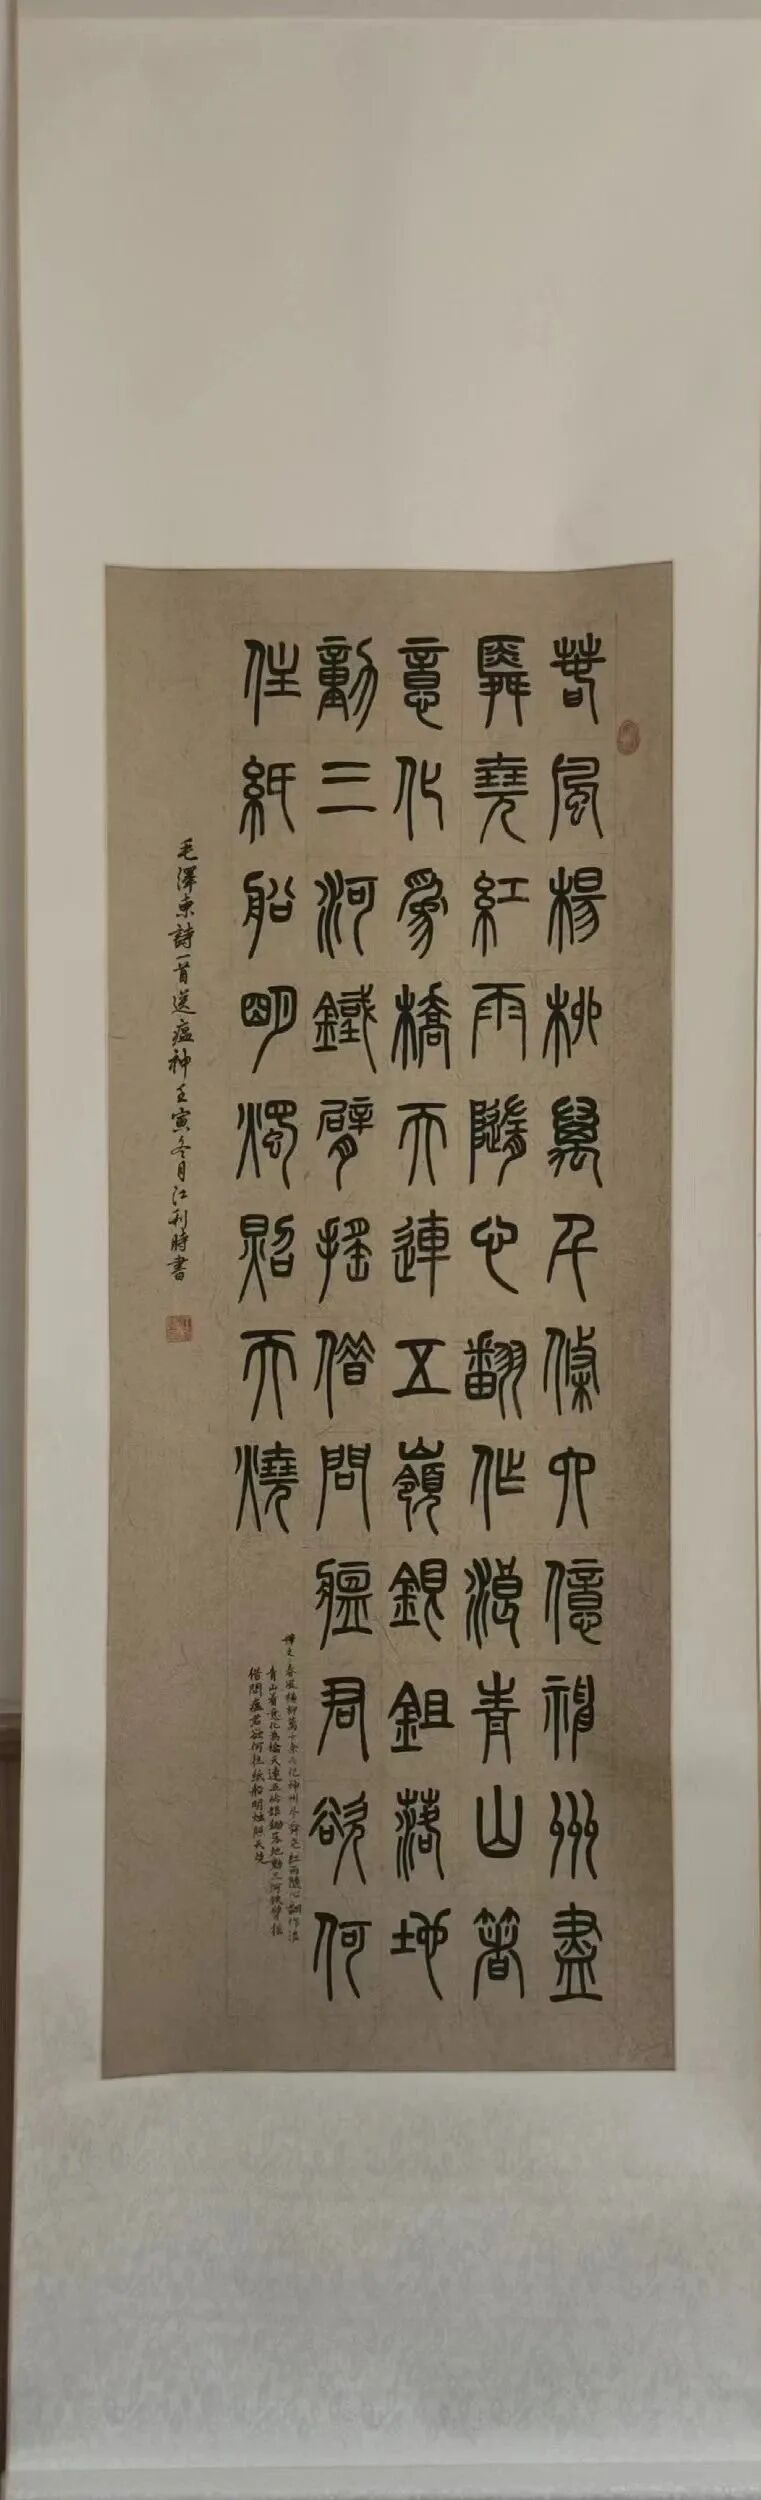 春風楊柳萬千條六億神州盡
舜堯紅雨隨心翻作浪青山着
意化為橋天連五嶺銀鉏落地
動三河鐵臂搖借問瘟君欲何
往紙船明燭照天燒
釋文春風楊柳萬千條六億神州盡舜堯紅雨隨心翻作浪
青山着意化為橋天連五嶺銀鋤落地動三河鐵臂搖
借問瘟君欲何往紙船明燭照天燒
毛澤東詩一首送瘟神壬寅冬月江利時書